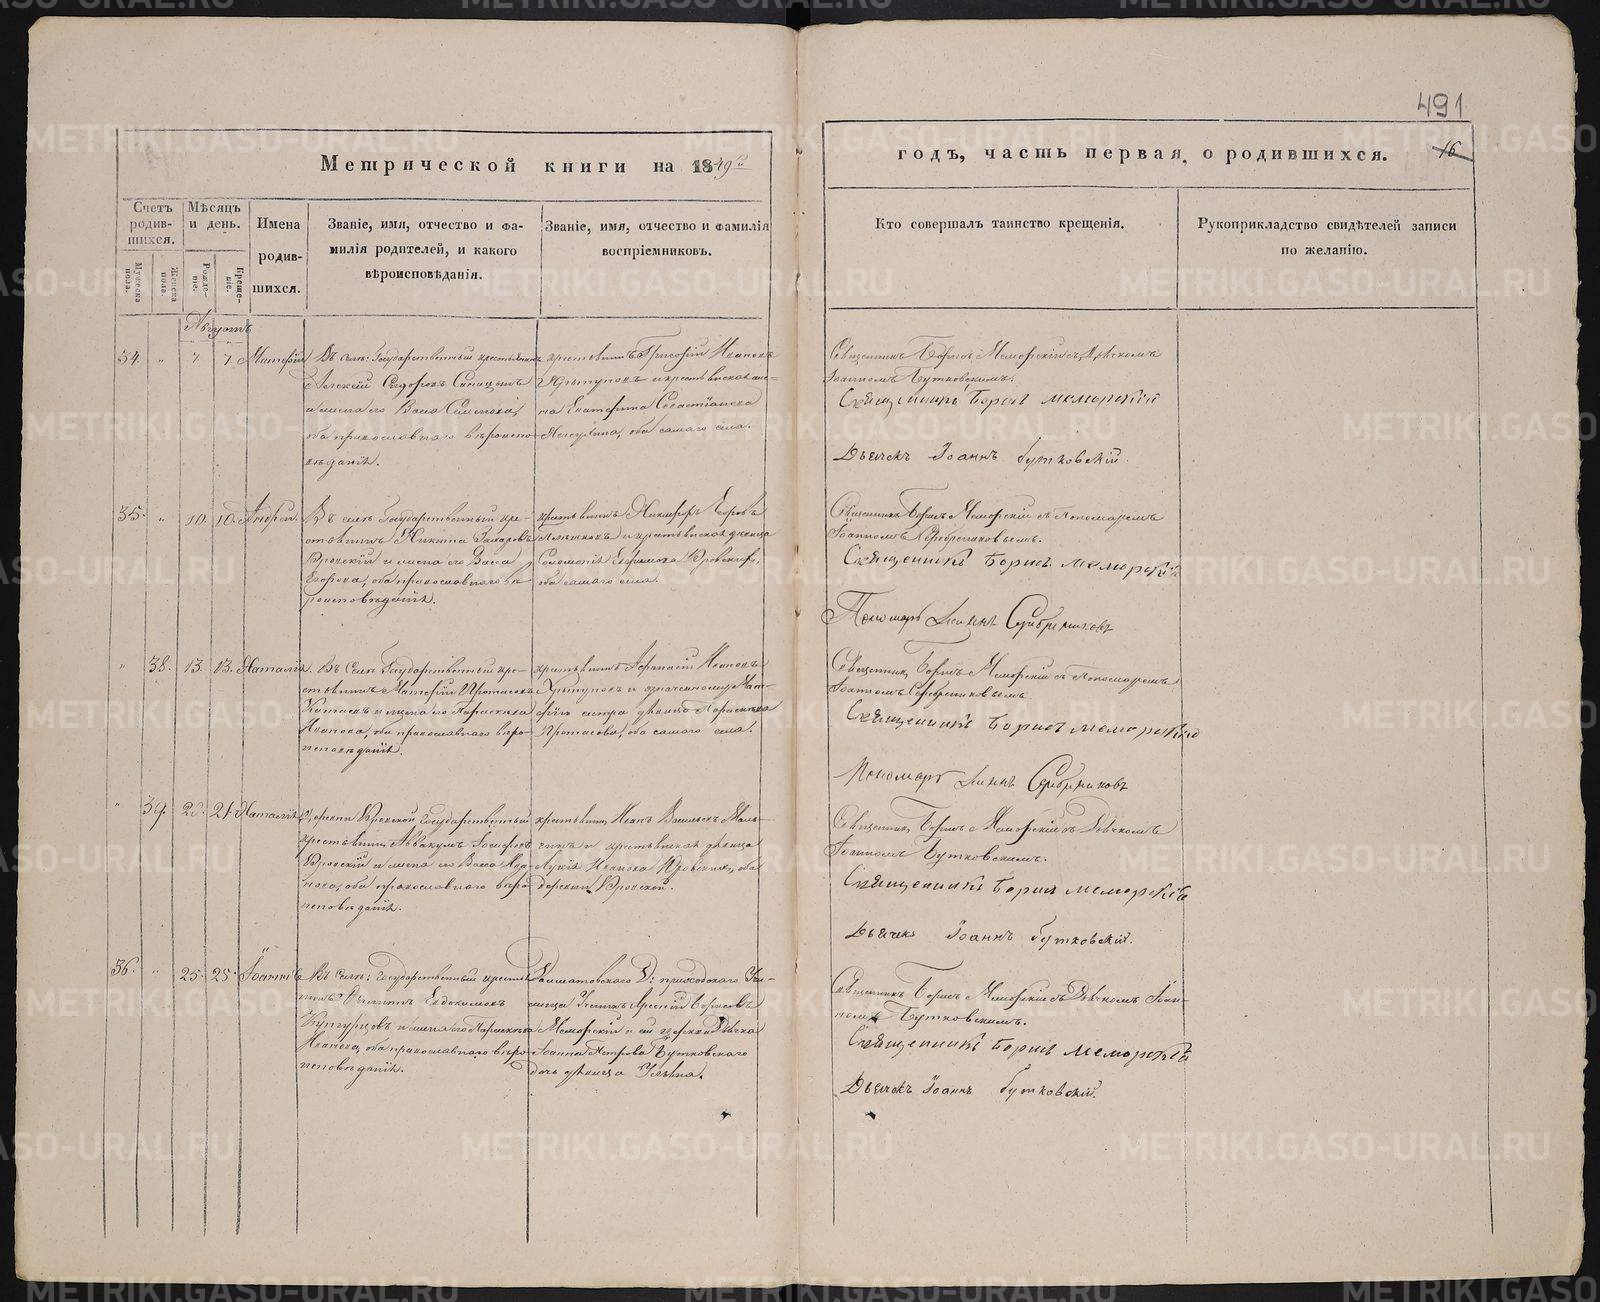 491
Метрической книги на 1849й
годъ, часть первая, о родившихся.
16
Счетъ родив-шихся.
Мужеска пола.
Женска пола.
Мѣсяцъ и день.
Рожде-ніе.
Креще-ніе.
Имена родив-шихся.
Званіе, имя, отчество и фа-
милія родителей, и какого
вѣроисповѣданія.
Званіе, имя, отчество и фамилія
воспріемниковъ.
Кто совершалъ таинство крещенія.
Рукоприкладство свидѣтелей записи
по желанію.
Августъ
34. „ 7. 7. Матѳій
Въ селѣ: Государственный крестьянинъ
Алексій Сидоровъ
и жена его Васса
оба православнаго вѣроиспо-
вѣданія.
крестьянинъ Григорій Ивановъ
и крестьянская же-
на Екатерина Севастіанова
оба самаго села.
Священникъ Борисъ Меморскій съ Дьячкомъ
Іоанномъ Бутковскимъ.
Священникъ Борисъ Меморскій
Дьячекъ Іоаннъ Бутковскій.
35. „ 10. 10. Андрей.
Въ селѣ Государственный кре-
стьянинъ Никита Захаровъ
Юровскій и жена его Васса
Егорова, оба православнаго вѣ-
роисповѣданія.
крестьянинъ Никифоръ Егоровъ
и крестьянская дѣвица
Соломонія Ефрамова Юровскихъ,
оба самаго села.
Священникъ Борисъ Меморскій съ Пономаремъ
Іоанномъ Серебрениковымъ.
Священникъ Борисъ Меморскій
Пономарь Іоаннъ Серебрениковъ
„ 38. 13. 13. Наталія.
Въ Селѣ Государственный кре-
стьянинъ Матѳій Протасовъ
и жена его Параскева
Иванова, оба православнаго вѣро-
исповѣданія.
крестьянинъ Аѳанасій Ивановъ
и означеннаго Мат-
ѳія сестра дѣвица Параскева
Протасова, оба самаго села.
Священникъ Борисъ Меморскій съ Пономаремъ
Іоанномъ Серебрениковымъ.
Священникъ Борисъ Меморскій
Пономарь Іоаннъ Серебрениковъ
„ 39. 20. 21. Наталія
Деревни Юровской Государственный
крестьянинъ Аввакумъ
Юровскій и жена его Васса
оба православнаго вѣро-
исповѣданія.
крестьянинъ Иванъ Васильевъ
и крестьянская дѣвица
Лукія Иванова Юровскихъ, оба
деревни Юровской.
Священникъ Борисъ Меморскій съ Дьячкомъ
Іоанномъ Бутковскимъ.
Священникъ Борисъ Меморскій
Дьячекъ Іоаннъ Бутковскій.
36. „ 25. 25. Іоаннъ
Въ Селѣ: Государственный крестья-
нинъ Филиппъ Евдокимовъ
Кунгурцовъ и жена его Параскева
Иванова, оба православнаго вѣро-
исповѣданія.
Далматовскаго Д: приходскаго Учи-
лища Ученикъ Арсеній Борисовъ
Меморскій и сей церкви Дьячка
Іоанна Петрова Бутковскаго
дочь дѣвица
Священникъ Борисъ Меморскій съ Дьячкомъ Іоан-
номъ Бутковскимъ.
Священникъ Борисъ Меморскій
Дьячекъ Іоаннъ Бутковскій.
METRIKI.GASO-URAL.RU